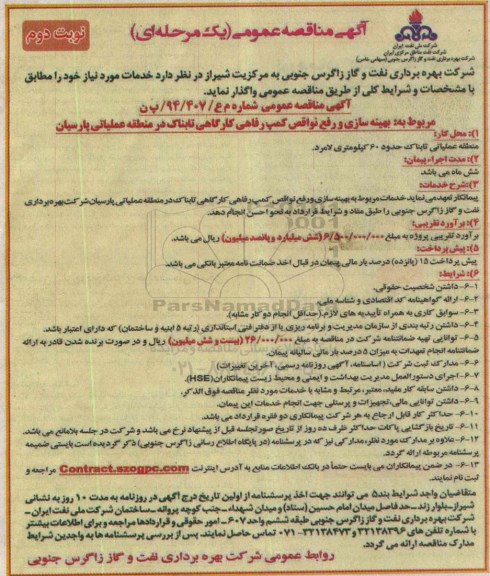 آگهی مناقصه عمومی (یک مرحله‌ای)
نوبت دوم
شرکت ملی نفت ایران
شرکت نفت مناطق مرکزی ایران
شرکت بهره برداری نفت و گاز زاگرس جنوبی (سهامی خاص)
شرکت بهره برداری نفت و گاز زاگرس جنوبی به مرکزیت شیراز در نظر دارد خدمات مورد نیاز خود را مطابق
با مشخصات و شرایط کلی از طریق مناقصه عمومی واگذار نماید.
آگهی مناقصه عمومی شماره م ع/۹۴/۴۰۷/ پ ن
مربوط به: بهینه سازی و رفع نواقص کمپ رفاهی کارگاهی تابناک در منطقه عملیاتی پارسیان
۱): محل کار:
منطقه عملیاتی تابناک حدود ۶۰ کیلومتری لامرد.
۲): مدت اجراء پیمان:
شش ماه می باشد
۳): شرح خدمات:
پیمانکار تعهد می نماید خدمات مربوط به بهینه سازی و رفع نواقص کمپ رفاهی کارگاهی تابناک در منطقه عملیاتی پارسیان شرکت بهره برداری
نفت و گاز زاگرس جنوبی را طبق مفاد و شرایط قرارداد به نحو احسن انجام دهد.
۴): برآورد تقریبی:
برآورد تقریبی پروژه به مبلغ ۶/۵۰۰/۰۰۰/۰۰۰ (شش میلیارد و پانصد میلیون) ریال می باشد.
۵): پیش پرداخت:
پیش پرداخت ۱۵ (پانزده) درصد بار مالی پیمان در قبال اخذ ضمانت نامه معتبر بانکی می باشد.
۶): شرایط:
۱-۶- داشتن شخصیت حقوقی.
۲-۶- ارائه گواهینامه کد اقتصادی و شناسه ملی.
۳-۶- سوابق کاری به همراه تأییدیه های لازم. (حداقل انجام دو کار مشابه).
۴-۶- داشتن رتبه بندی از سازمان مدیریت و برنامه ریزی یا از دفتر فنی استانداری (رتبه ۵ ابنیه و ساختمان) که دارای اعتبار باشد.
۵-۶- توانایی تهیه ضمانتنامه شرکت در مناقصه به مبلغ ۲۶/۰۰۰/۰۰۰ (بیست و شش میلیون) ریال و در صورت برنده شدن قادر به ارائه
ضمانتنامه انجام تعهدات به میزان ۵ درصد بار مالی سالیانه پیمان.
۶-۶- مدارک ثبت شرکت (اساسنامه، آگهی روزنامه رسمی، آخرین تغییرات)
۷-۶- اجرای دستورالعمل مدیریت بهداشت و ایمنی و محیط زیست پیمانکاران (HSE).
۸-۶- داشتن سابقه کار مفید، معتبر، مرتبط و مشابه با خدمات مورد نظر مناقصه فوق الذکر.
۹-۶- داشتن توانایی مالی، تجهیزات و پرسنلی جهت انجام خدمات این پیمان.
۱۰-۶- حداکثر کار قابل ارجاع به هر شرکت پیمانکاری دو فقره قرارداد می باشد.
۱۱-۶- تاریخ بازگشایی پاکات حداکثر ظرف ده روز از تاریخ صورتجلسه قبل از پیشنهاد نرخ می باشد و شرکت در جلسه بلامانع می باشد.
۱۲-۶- علاوه بر مدارک مورد نظر، مدارکی نیز که در پرسشنامه (در پایگاه اطلاع رسانی زاگرس جنوبی) ذکر گردیده است بایستی ضمیمه
پرسشنامه مربوطه ارائه گردد.
۱۳-۶- در ضمن پیمانکاران می بایست حتماً در بانک اطلاعات منابع به آدرس اینترنت Contract.szogpc.com مراجعه و
ثبت نام نمایند.
متقاضیان واجد شرایط بند۵ می توانند جهت اخذ پرسشنامه از اولین تاریخ درج آگهی در روزنامه به مدت ۱۰ روز به نشانی
شیراز-بلوار زند-حد فاصل میدان امام حسین (ستاد) و میدان شهداء-جنب کوچه پروانه-ساختمان شرکت ملی نفت ایران-
شرکت بهره برداری نفت و گاز زاگرس جنوبی طبقه ششم واحد ۶۰۷- امور حقوقی و قراردادها مراجعه و برای اطلاعات بیشتر
با شماره تلفن های ۳۲۱۳۸۳۹۶ و ۳۲۱۳۸۴۷۳-۰۷۱ تماس حاصل نمایند. پس از بررسی پرسشنامه ها به واجدین شرایط
مدارک مناقصه ارائه می گردد.
روابط عمومی شرکت بهره برداری نفت و گاز زاگرس جنوبی